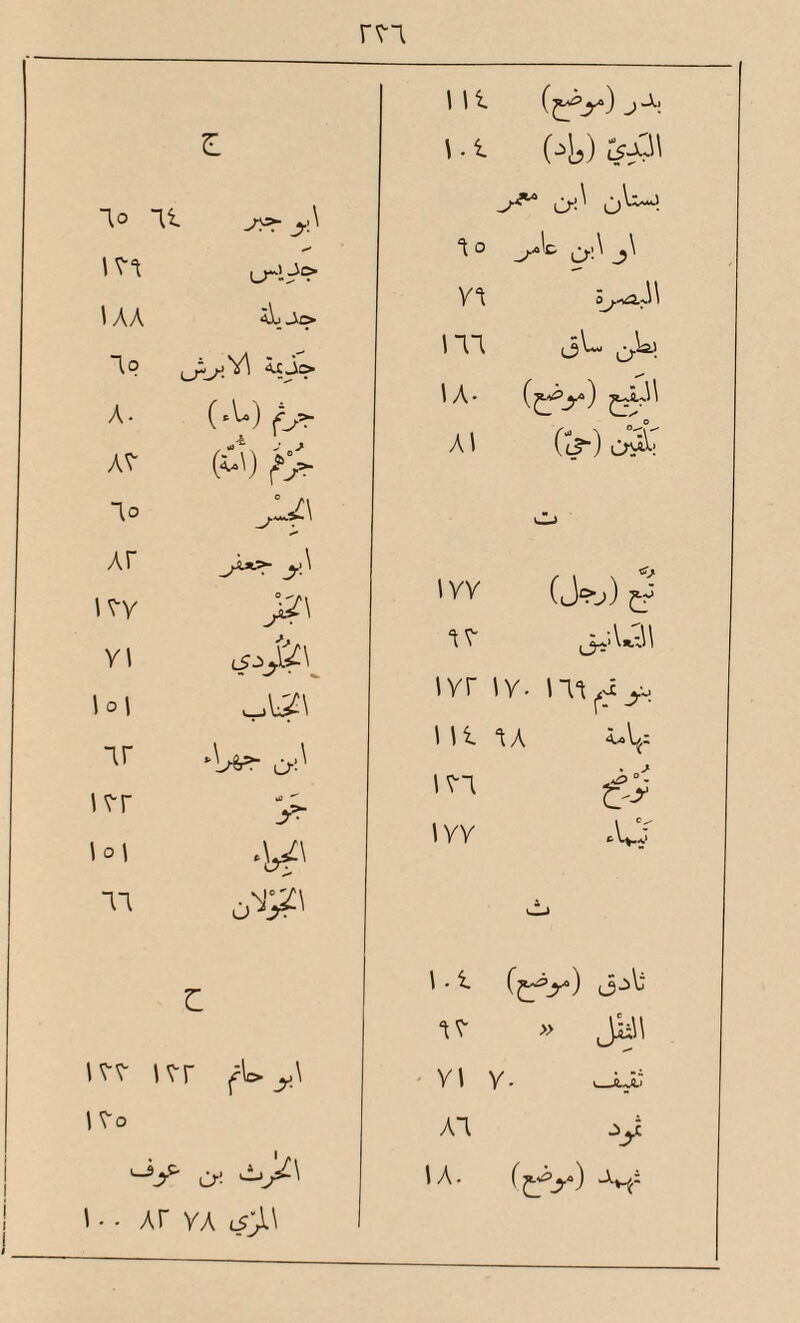 ٢٣٦
بدر (موضع) ١١٤
البَدِيّ (واد) ١٠٤
بستان ابن معمر
او ابن عامر ٩٥
البصرة ٧٩
بطن ساق ١٦٦
البقيع (موضع) ١٨٠
بَلْقَيْن (حيّ) ٨١
ت
تُبَّع (رجل) ١٧٧
التعانيق ٩٣
بنو تميم ١٦٩ ١٧٠ ١٧٢
تهامة ٩٨ ١١٤
تُوْضِح ١٣٦
تَيْماء ١٧٧
ث
ثادق (موضع) ١٠٤
الثِقْل » ٩٣
ثقيف ٧٠ ٧١
ثمود ٨٦
ثهمد (موضع) ١٨٠
ج
ابو جبر ٦٤ ٦٥
جَدِيس ١٣٩
جديلة ١٨٨
جَذيمة الابرش ٦٥
جرم (ماء) ٨٠
جُرْهُم (امّة) ٨٣
الجِسْر ٦٥
ابو جعفر ٨٢
الجَفْر ١٣٧
الجُلُودي ٧١
الجِناب ١٥١
ابن جهراء ٦٢
جَوّ ١٣٢
الجِواء ١٥١
الجَوْلان ٦٦
ح
ابو حاتم ١٣٢ ١٣٣
١٣٥
الحرث بن عوف
المرّى ٧٨ ٨٢ ١٠٠